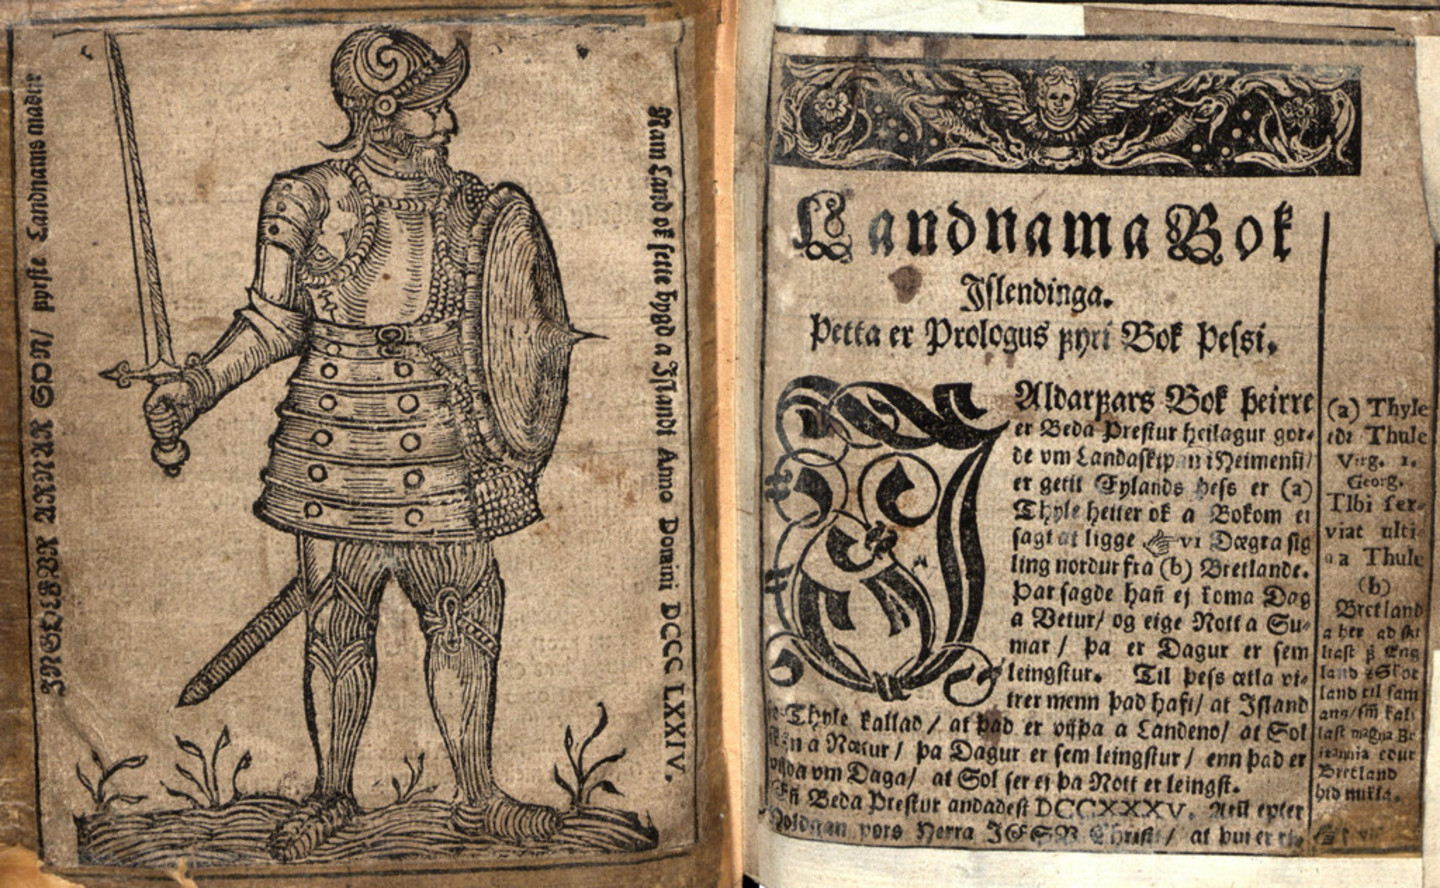 INGLFUR ARNAR SON/ ꝼyrſte Landnams madur
Nam Land ok ſette bygd a Jſlandi Anno Domini DCCC LXXIV.
Landnama Bok
Jſlendinga.
Þetta er Prologus ꝼyri Bok Þeſsi.
J Aldarꝼars Bok þeirre
er Beda Preſtur heilagur gor⸗
de vm Landaſkipan i Heimenū/
er getit Eylands þeſs er (a)
Thyle heiter ok a Bokom er
ſagt at ligge ☞ VI Dœgra ſig
ling nordur fra (b) Bretlande.
Þar ſagde hañ ej koma Dag
a Vetur/ og eige Nott a Su⸗
mar/ þa er Dagur er ſem
leingſtur. Til þeſs œtla vi⸗
trer menn þad hafi/ at Jſland
Thyle kallad/ at þad er vijþa a Landeno/ at Sol
a Nœtur/ þa Dagur er ſem leingſtur/ enn þad er
vijþa vm Daga/ at Sol ſer ej þa Nott er leingſt.
Eñ Beda Preſtur andadeſt DCCXXXV. Arū epter
Holdgan vors Herra JESU Chriſti/ at þui er
(a) Thyle
edr Thule
Virg. 1.
Georg.
Tibi ſer⸗
viat ulti⸗
a Thule
(b)
Bretland
a her ad ſki
liaſt
land
land til ſam
ans/
laſt magna Br
itannia edur
Bretland
hid mikla.